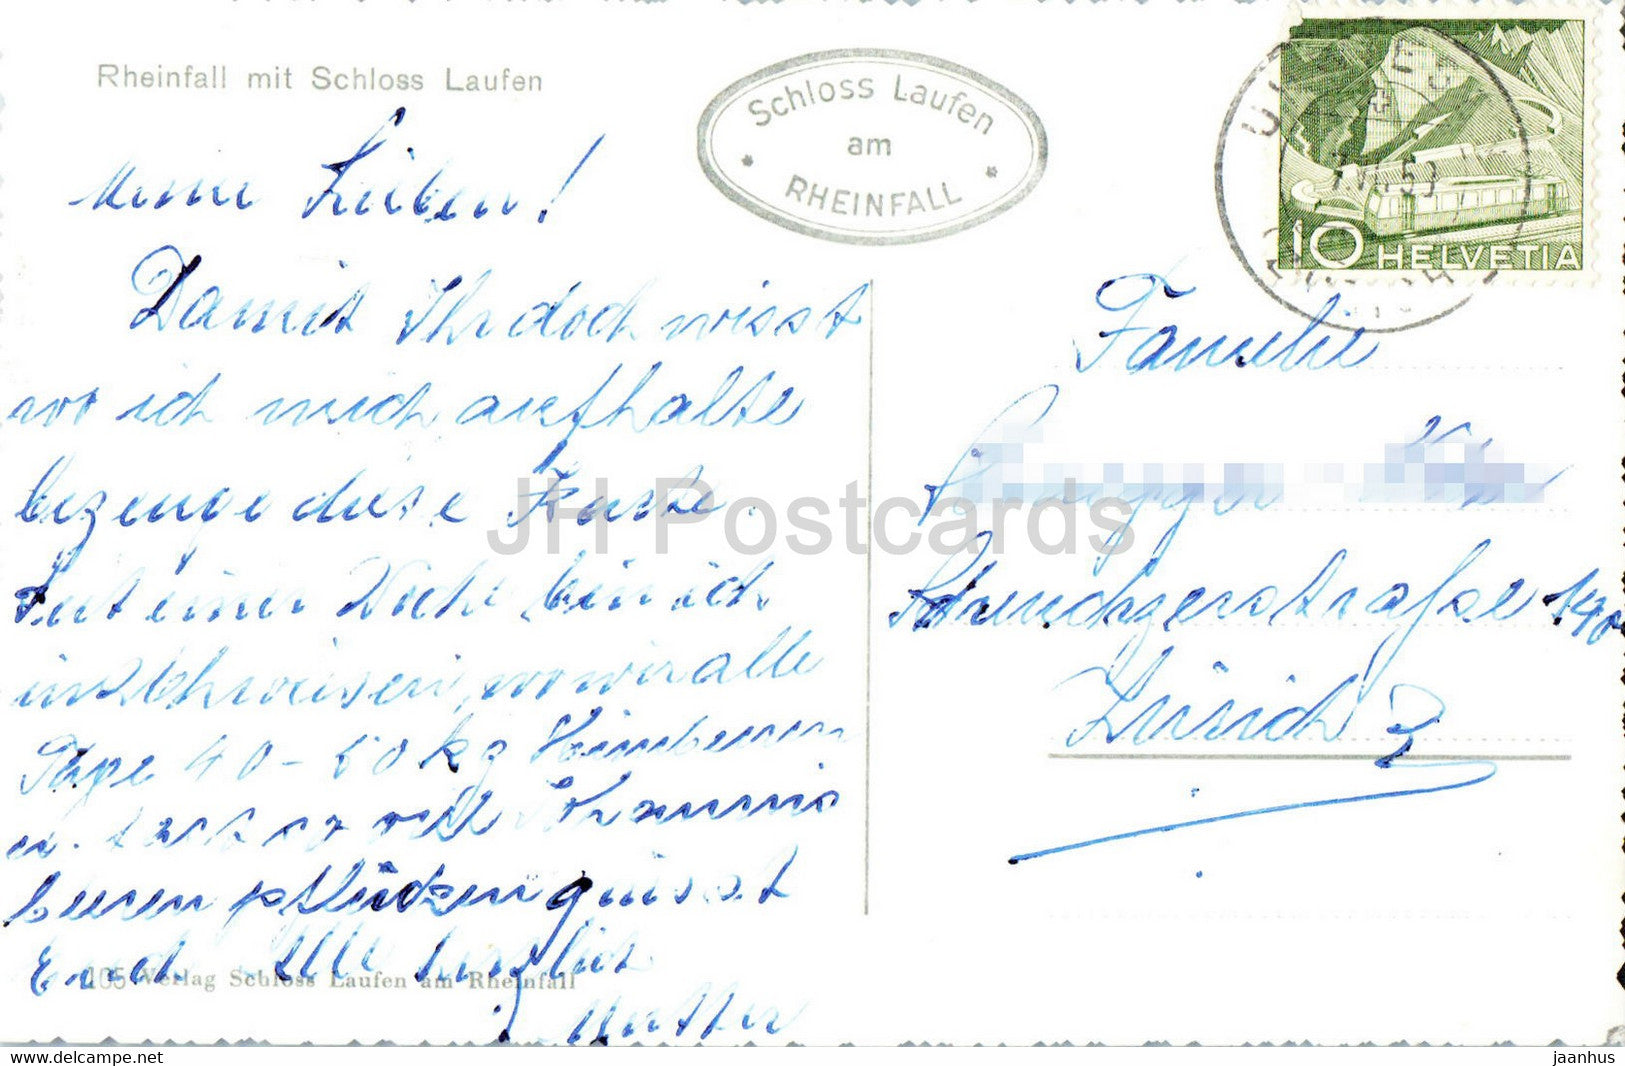 Rheinfall mit Schloss Laufen
Meine Lieben!
Damit Ihr doch wisst
wo ich mich aufhalte
bezeuge diese Karte.
Seit einer Woche bin ich
in wo wir alle
Tage 40-50 kg Himbeeren
u. fast so viel Johannis
beeren pflücken, grüsst
Euch Alle herzlich
Mutter
105 Verlag Schloss Laufen am Rheinfall
Schloss Laufen
am
RHEINFALL
10 HELVETIA
Familie
140
Zürich 3
JH Postcards
www.delcampe.net
jaanhus